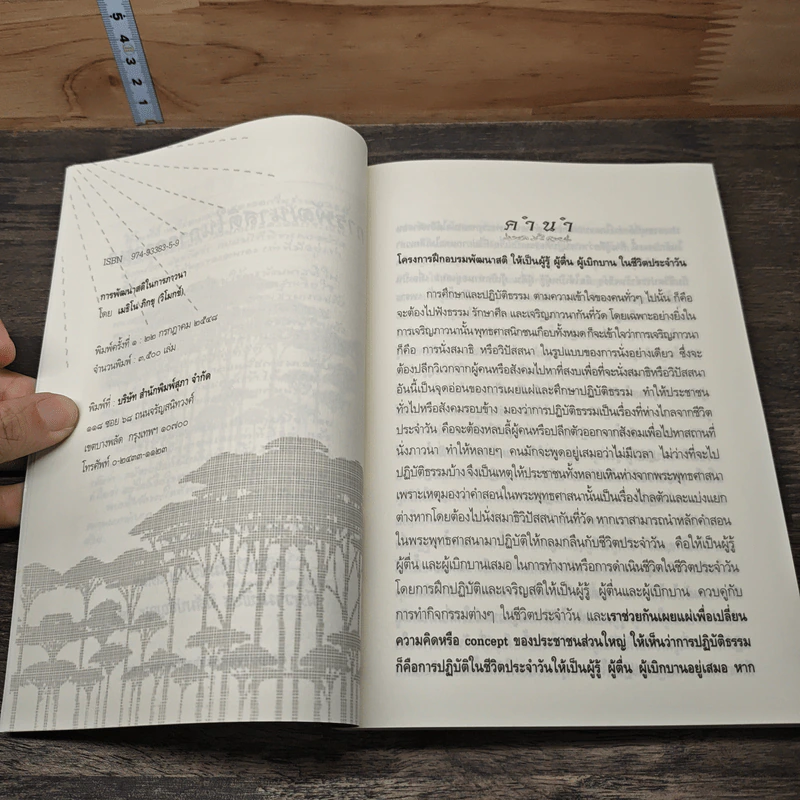 5
4
3
2
1
ISBN 974-93393-5-9
การพัฒนาสติในการภาวนา
โดย เมธิโน ภิกขุ (วิโมกข์)
พิมพ์ครั้งที่ ๑ : ๒๒ กรกฎาคม ๒๕๔๘
จำนวนพิมพ์ : ๓,๕๐๐ เล่ม
พิมพ์ที่ บริษัท สำนักพิมพ์สุภา จำกัด
๑๑๘ ซอย ๖๘ ถนนจรัญสนิทวงศ์
เขตบางพลัด กรุงเทพฯ ๑๐๗๐๐
โทรศัพท์ ๐-๒๔๓๓-๑๑๒๓
คำนำ
โครงการฝึกอบรมพัฒนาสติ ให้เป็นผู้รู้ ผู้ตื่น ผู้เบิกบาน ในชีวิตประจำวัน
การศึกษาและปฏิบัติธรรม ตามความเข้าใจของคนทั่วๆ ไปนั้น ก็คือ
จะต้องไปฟังธรรม รักษาศีล และเจริญภาวนากันที่วัด โดยเฉพาะอย่างยิ่งใน
การเจริญภาวนานั้น พุทธศาสนิกชนเกือบทั้งหมด ก็จะเข้าใจว่าการเจริญภาวนา
ก็คือ การนั่งสมาธิ หรือวิปัสสนา ในรูปแบบของการนั่งอย่างเดียว ซึ่งจะ
ต้องปลีกวิเวกจากผู้คนหรือสังคมไปหาที่สงบเพื่อที่จะนั่งสมาธิหรือวิปัสสนา
อันนี้เป็นจุดอ่อนของการเผยแผ่และศึกษาปฏิบัติธรรม ทำให้ประชาชน
ทั่วไปหรือสังคมรอบข้าง มองว่าการปฏิบัติธรรมเป็นเรื่องที่ห่างไกลจากชีวิต
ประจำวัน คือจะต้องหลบลี้ผู้คนหรือปลีกตัวออกจากสังคมเพื่อไปหาสถานที่
นั่งภาวนา ทำให้หลายๆ คนมักจะพูดอยู่เสมอว่าไม่มีเวลา ไม่ว่างที่จะไป
ปฏิบัติธรรมบ้าง จึงเป็นเหตุให้ประชาชนทั้งหลายเหินห่างจากพระพุทธศาสนา
เพราะเหตุมองว่าคำสอนในพระพุทธศาสนานั้นเป็นเรื่องไกลตัวและแบ่งแยก
ต่างหากโดยต้องไปนั่งสมาธิวิปัสสนากันที่วัด หากเราสามารถนำหลักคำสอน
ในพระพุทธศาสนามาปฏิบัติให้กลมกลืนกับชีวิตประจำวัน คือให้เป็นผู้รู้
ผู้ตื่น และผู้เบิกบานเสมอ ในการทำงานหรือการดำเนินชีวิตในชีวิตประจำวัน
โดยการฝึกปฏิบัติและเจริญสติให้เป็นผู้รู้ ผู้ตื่นและผู้เบิกบาน ควบคู่กับ
การทำกิจกรรมต่างๆ ในชีวิตประจำวัน และเราช่วยกันเผยแผ่เพื่อเปลี่ยน
ความคิดหรือ concept ของประชาชนส่วนใหญ่ ให้เห็นว่าการปฏิบัติธรรม
ก็คือการปฏิบัติในชีวิตประจำวันให้เป็นผู้รู้ ผู้ตื่น ผู้เบิกบานอยู่เสมอ หาก